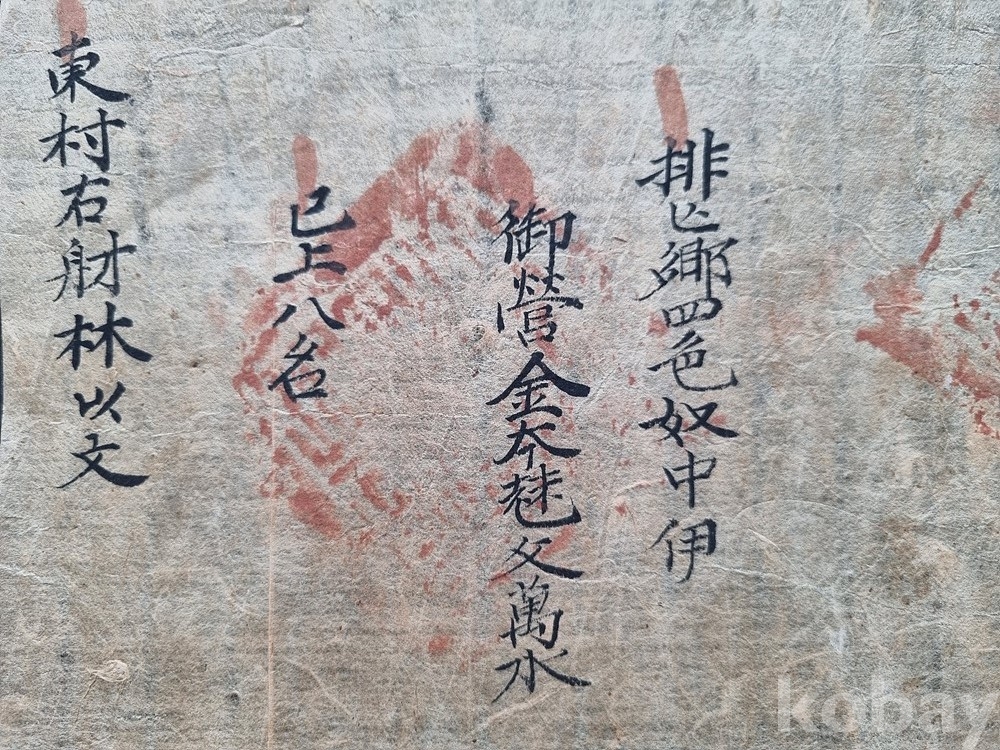 排上鄕四色奴中伊
御營金夲㐥父萬水
已上八名
東村右射林以文
kobay